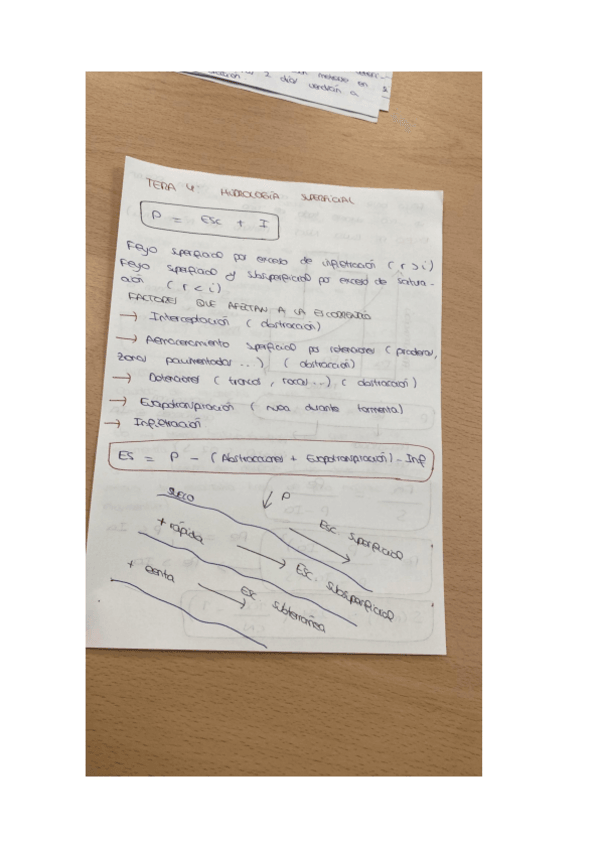 2 días vendrán a
TEMA 4: HIDROLOGÍA SUPERFICIAL
P = Esc + I
Flujo superficial por exceso de infiltración ( r > i )
Flujo superficial et subsuperficial por exceso de satura-
ción ( r < i )
FACTORES QUE AFECTAN A LA ESCORRENTÍA
→ Interceptación ( abstracción )
→ Almacenamiento superficial por retenciones ( praderas,
zonas pavimentadas ... ) ( abstracción )
→ Detenciones ( troncos, rocas ... ) ( abstracción )
→ Evapotranspiración ( nula durante tormenta )
→ Infiltración
ES = P - ( Abstracciones + Evapotranspiración ) - Inf
suelo
P
Esc. superficial
+ rápida
Esc. subsuperficial
+ lenta
Esc subterránea